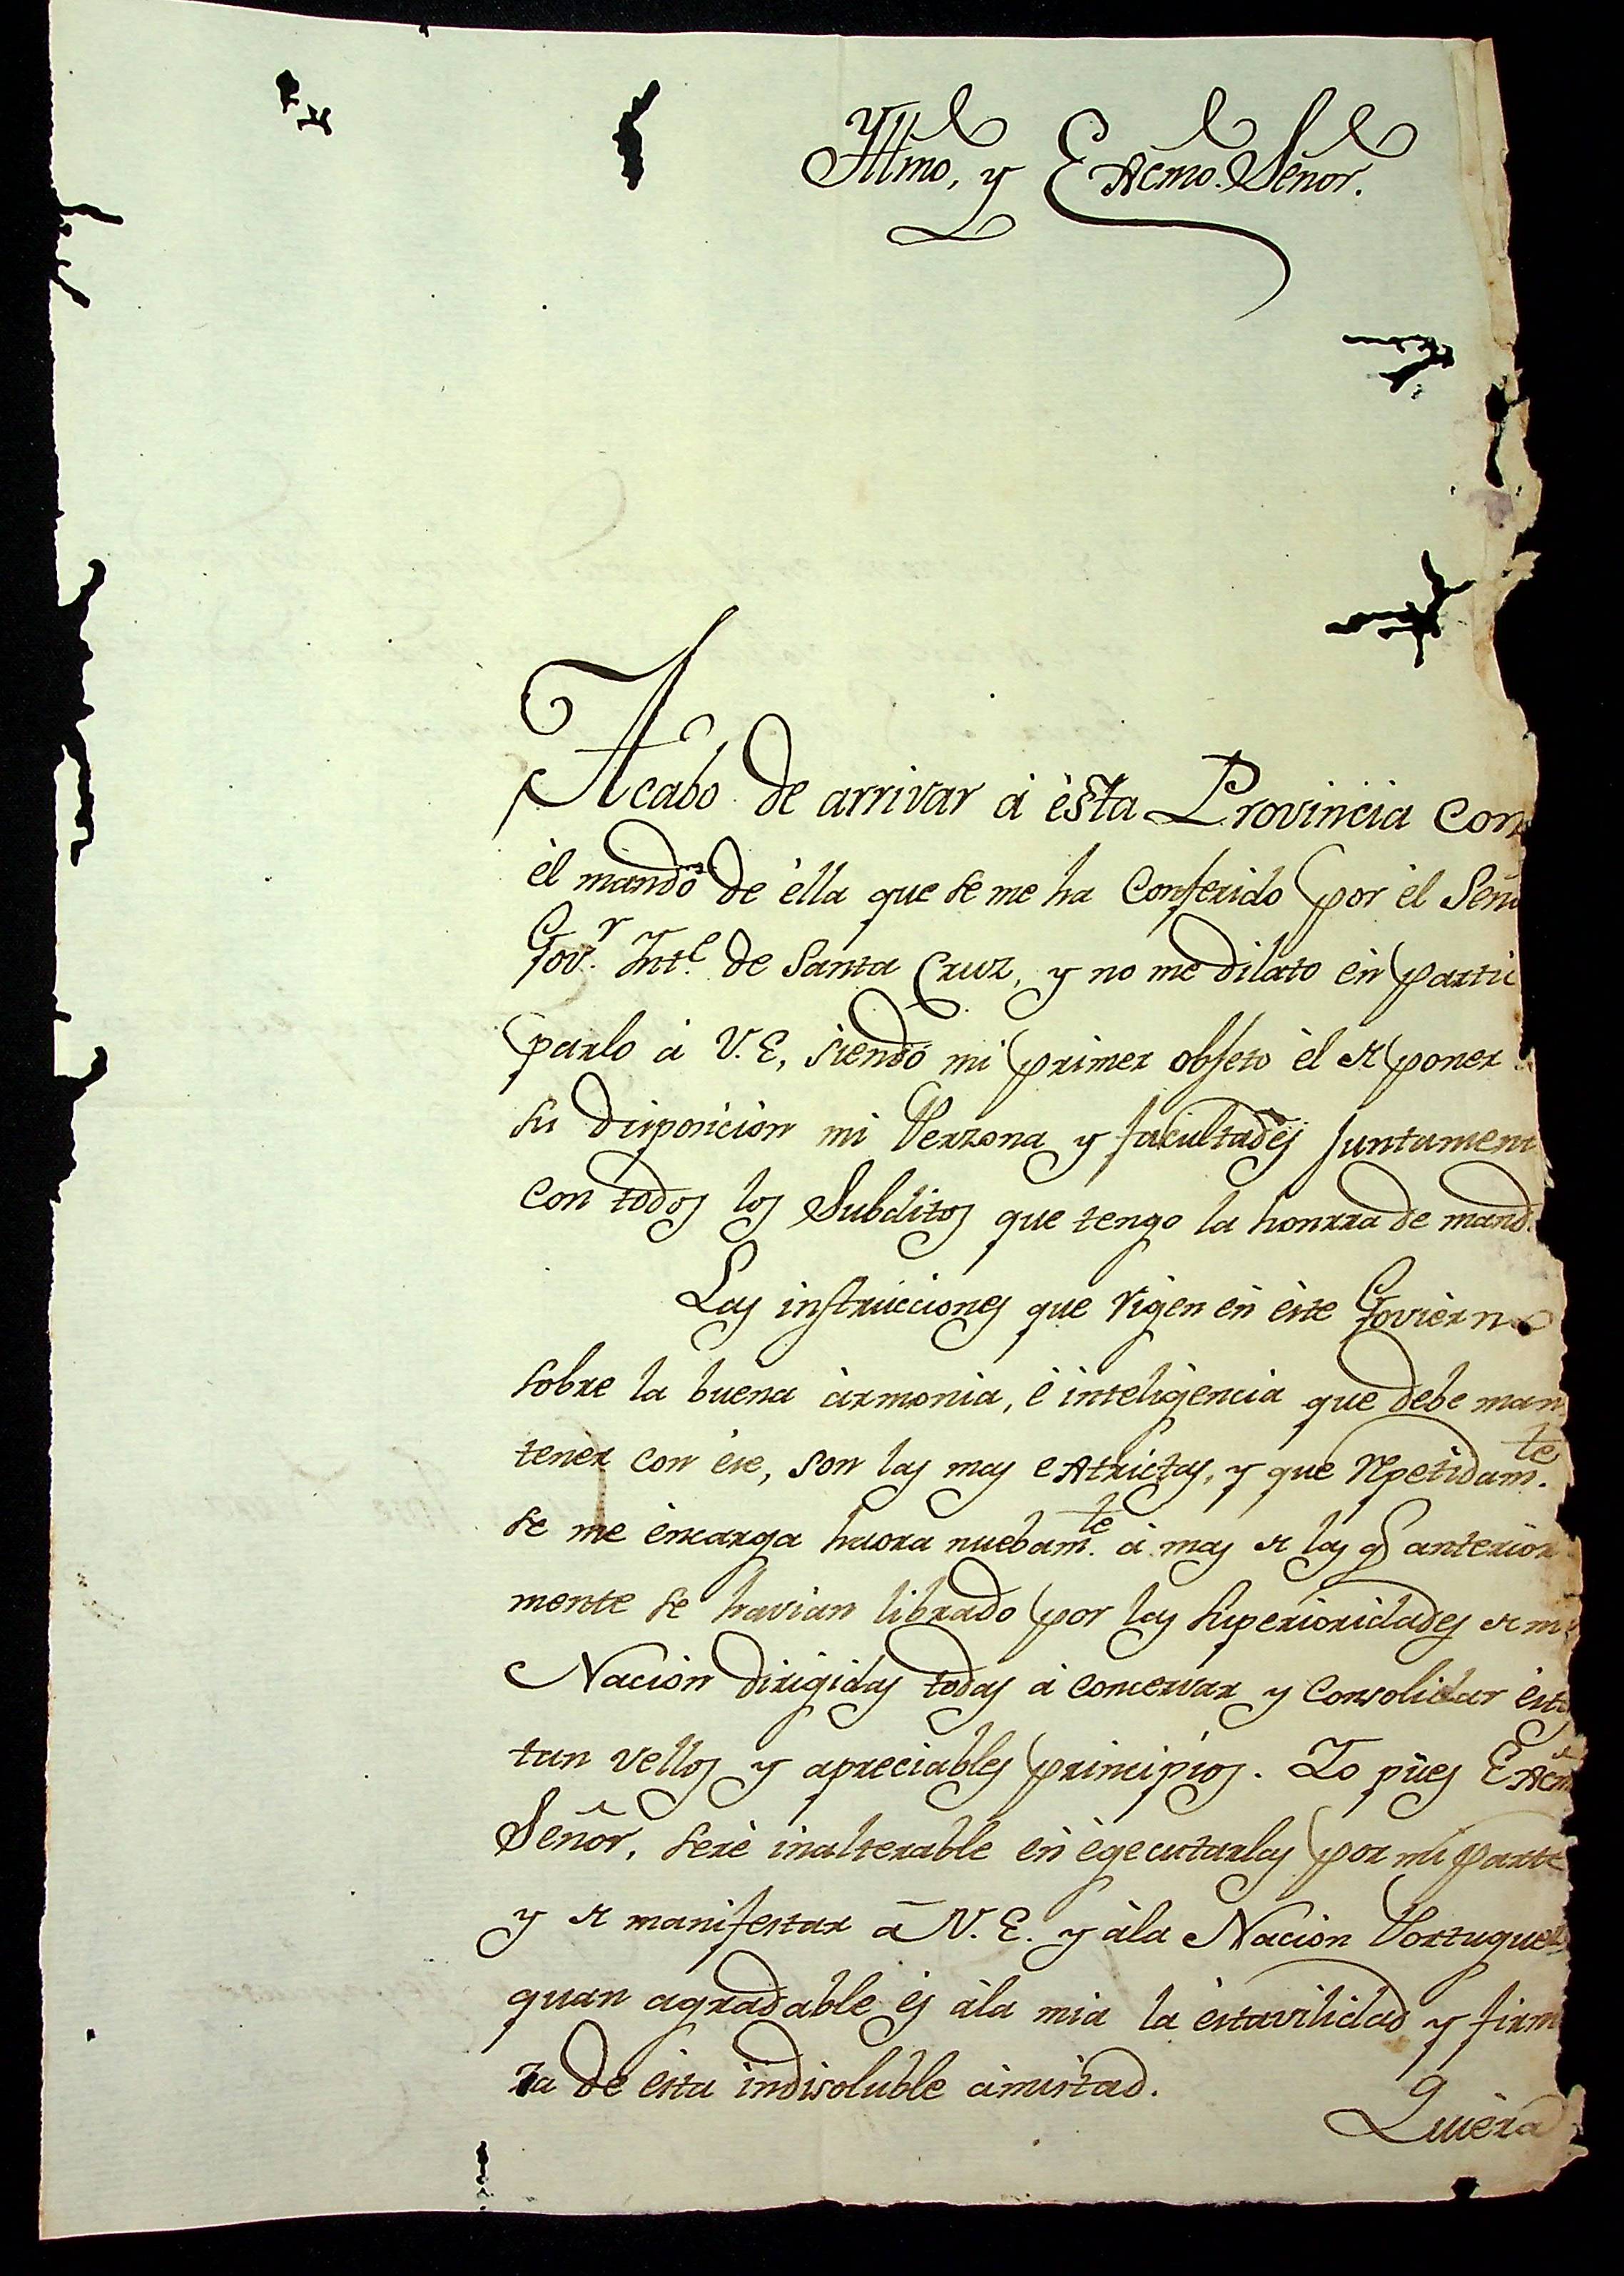 Yllmo, y Excmo. Señor.
Acabo de arrivar á ésta Provincia con
él mando de élla que se me ha Conferido por él Seño
Govr. Intē. de Santa Cruz, y no me dilato én partici
parlo á V. E, siendo mi primer objeto él de poner
su disposicion mi Perzona y facultades Juntament
con todos los Subditos que tengo la honrra de mand
Las instrucciones que rigen én éste Govierno
sobre la buena ármonia, é inteligencia que debe man
tener con ése, son las mas extrictas, y que repetidamte.
se me éncarga haora nuebamte. á mas de las q anterior
mente se havian librado por las Superioridades de mi
Nación dirigidas todas á concervar y Consolidar ésto
tan vellos y apreciables principios. Yo púes Excm
Señor, seré inalterable én égecutarlas por mi parte
y de manifestar á V. E. y ála Nación Portugueza
quan agradable és ála mia la éstavilidad y firme
za de ésta indisoluble ámistad.
Quiéra